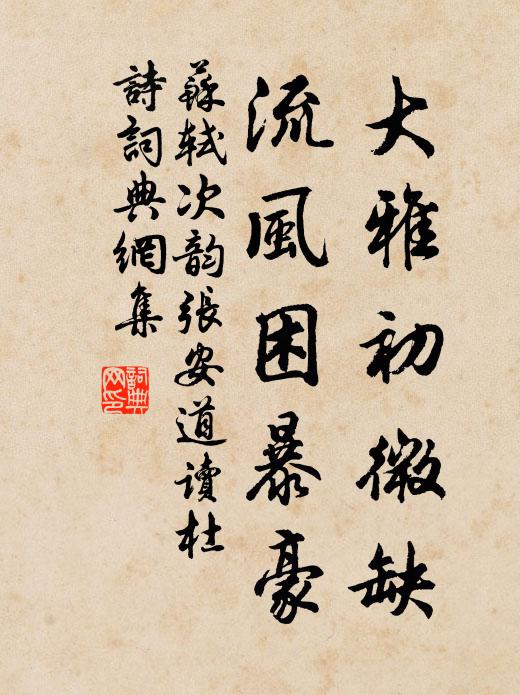 大雅初微缺
流風困暴豪
蘇軾次韵張安道讀杜
詩詞典網集
詞典網印